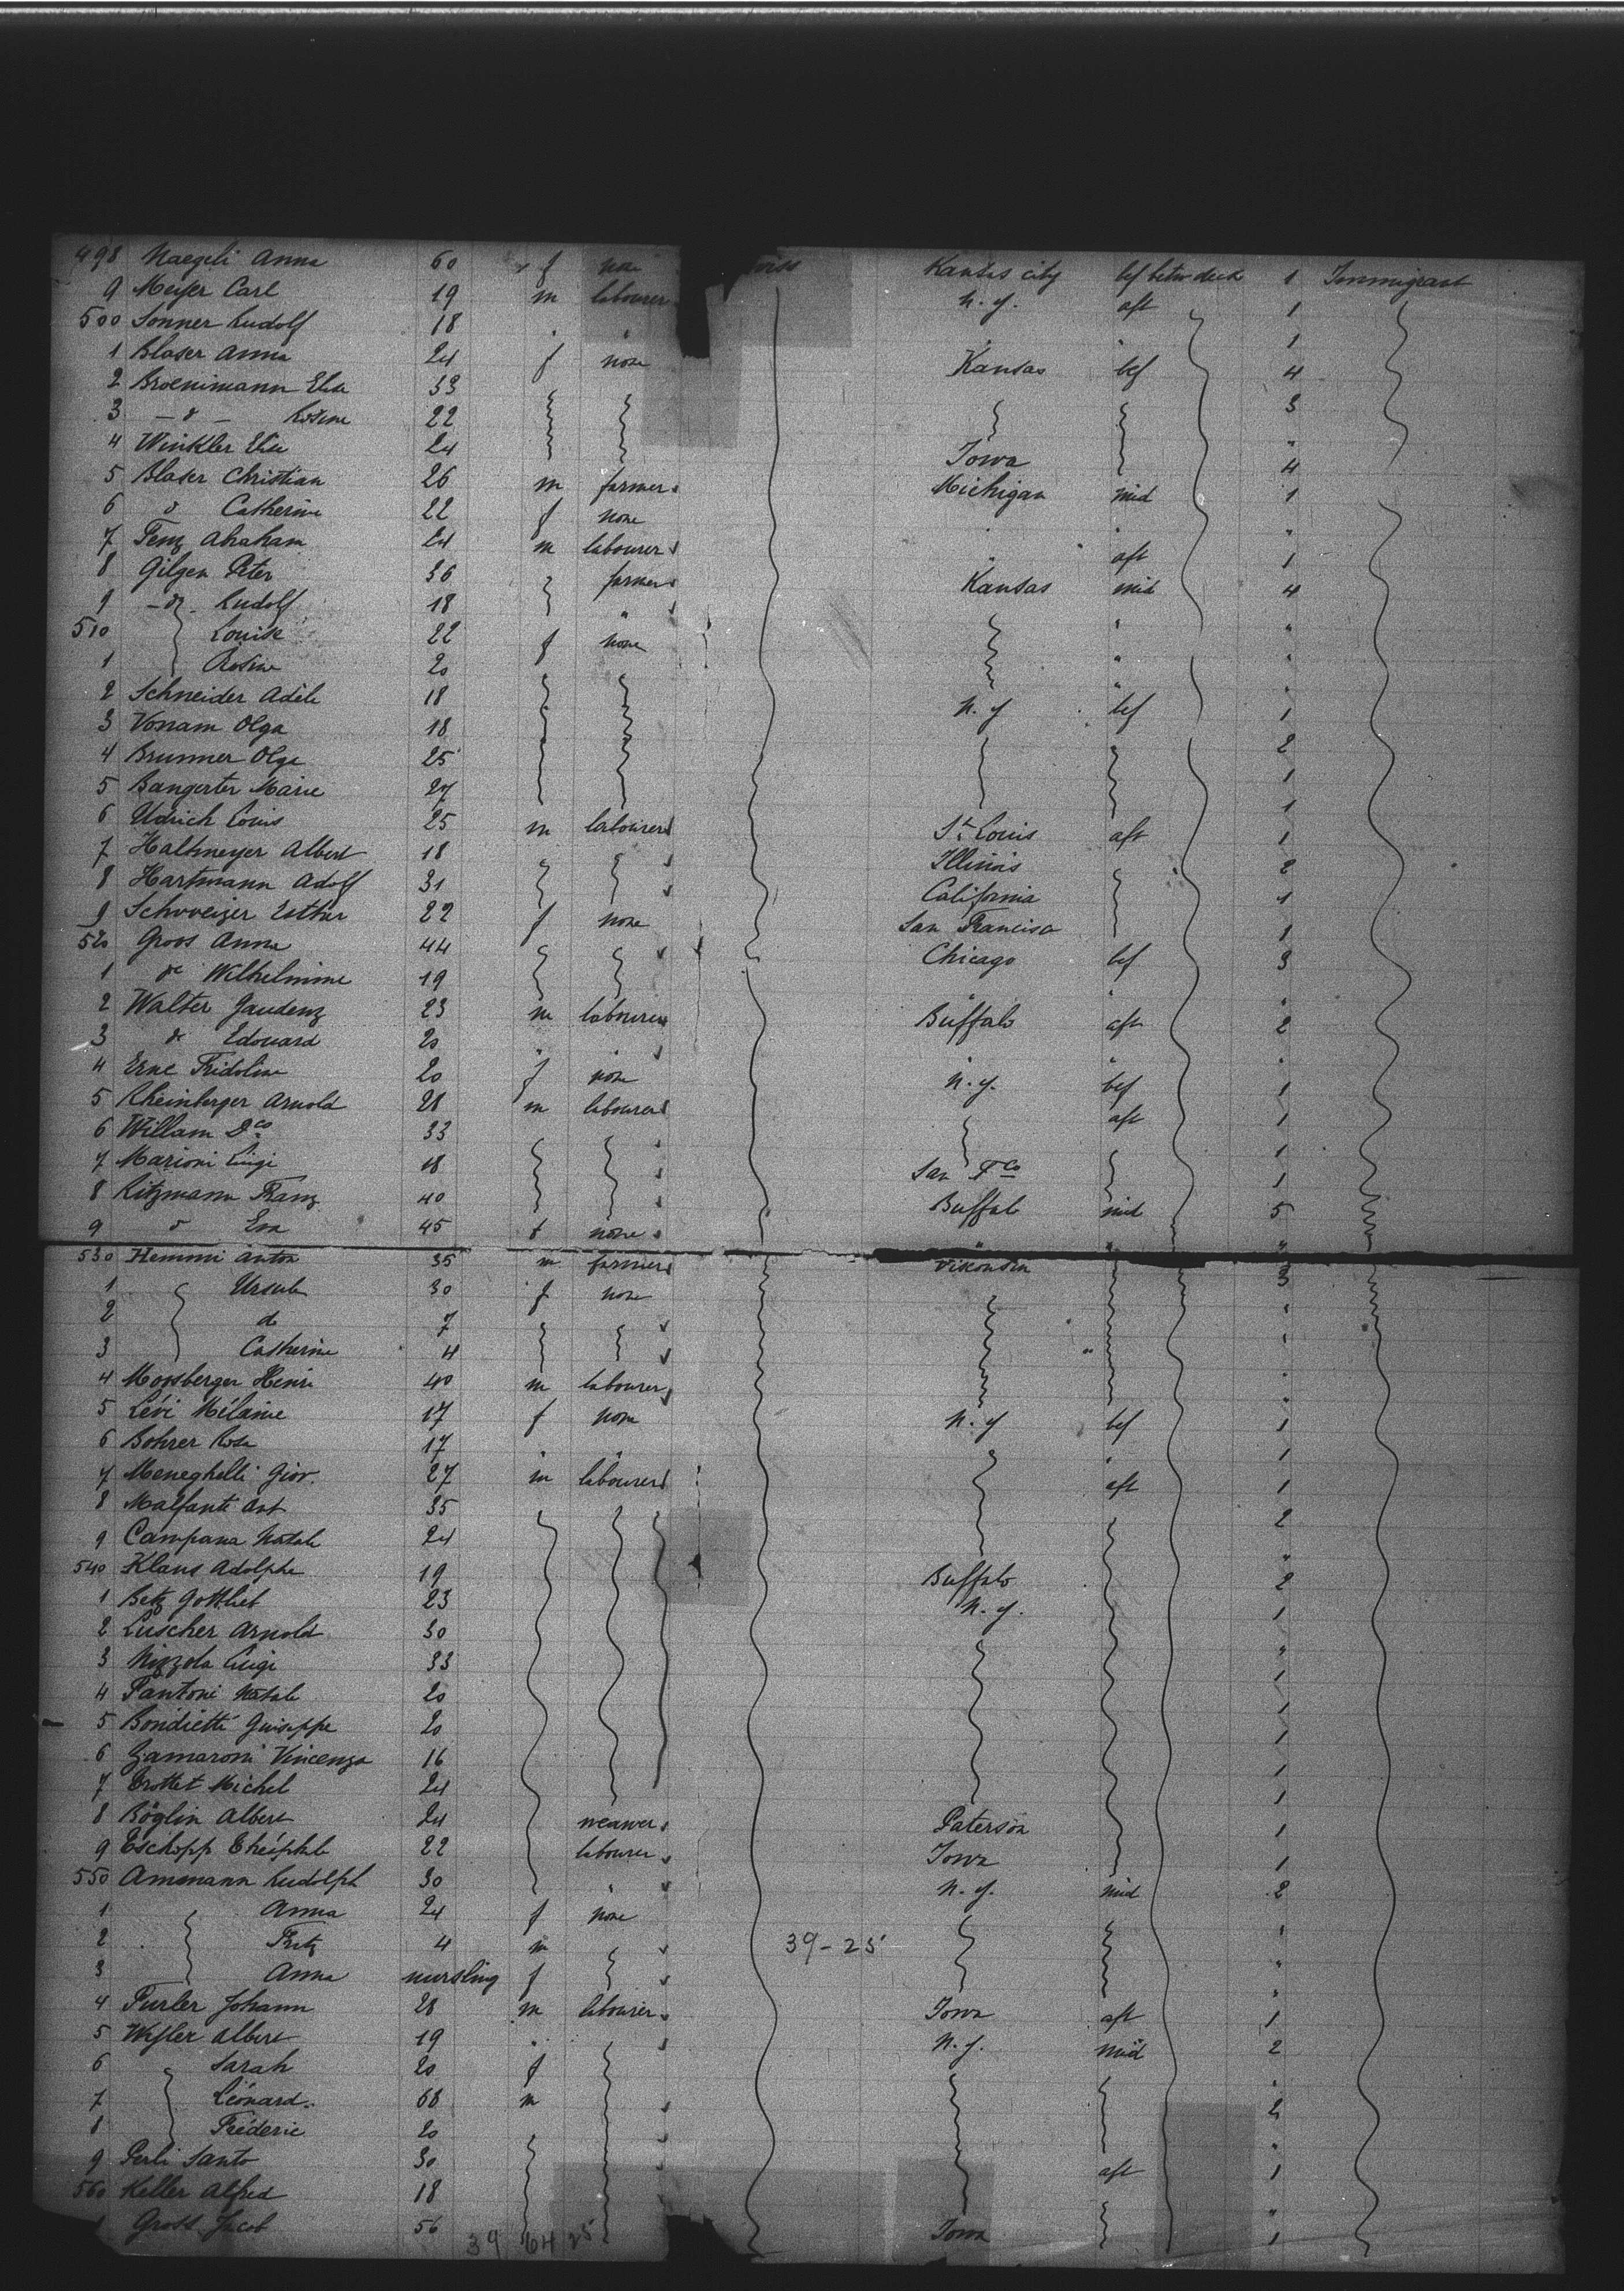 498 Naegeli Anna 60 f none Kansas city bef betw deck 1 Immigrant
9 Meyer Carl 19 m labourer N. Y. aft 1
500 Sonner Rudolf 18 " " " " 1
1 Blaser Anna 24 f none Kansas bef 4
2 Broenimann Elise 33 3
3 - d - Rosine 22 "
4 Winkler Elise 24 Iowa 4
5 Blaser Christian 26 m farmer Michigan mid 1
6 d Catherine 22 f none " " "
7 Fenz Abraham 24 m labourer " aft 1
8 Gilgen Peter 36 farmer Kansas mid 4
9 - d - Rudolf 18 " " "
510 Louise 22 f none " "
1 Rosine 20 " "
2 Schneider Adèle 18 N. Y bef 1
3 Vonam Olga 18 2
4 Brunner Olga 25 1
5 Bangerter Marie 27 1
6 Udrich Louis 25 m labourer St. Louis aft 1
7 Haltmeyer Albert 18 Illinois 2
8 Hartmann Adolf 31 California 1
9 Schweizer Esther 22 f none San Francisco 1
520 Groos Anna 44 Chicago bef 3
1 do Wilhelmine 19 " " "
2 Walter Gaudenz 23 m labourer Buffalo aft 2
3 do Edouard 20 " " " " "
4 Erne Fridoline 20 f none N. Y. bef 1
5 Rheinberger Arnold 28 m labourer aft 1
6 Willam Dco 33 1
7 Marioni Luigi 18 San Fco 1
8 Ritzmann Franz 40 Buffalo mid 5
9 d Eva 45 f none " " "
530 Hemmi Anton 35 m farmer Viskonsin 3
1 Ursula 30 f none "
2 do 7 "
3 Catherine 4 "
4 Mossberger Henri 40 m labourer "
5 Lévi Mélanie 17 f none N. Y bef 1
6 Bohrer Rosa 17 " " " 1
7 Meneghelli Giov. 27 m labourer aft 1
8 Malfanti Ant 35 2
9 Campana Natale 24 "
540 Klaus Adolphe 19 Buffalo 2
1 Betz Gottlieb 23 N. Y. 1
2 Luscher Arnold 30 "
3 Nizzola Luigi 33 1
4 Fantoni Natale 20 1
5 Bondietti Guiseppe 20 1
6 Zamaroni Vincenzo 16 1
7 Crottet Michel 24 1
8 Böglin Albert 24 weawer Paterson 1
9 Eschopp Théophile 22 labourer Iowa 1
550 Ammann Rudolph 30 " N. Y. mid 2
1 Anna 24 f none "
2 Fritz 4 m 39-25 "
3 Anna nursling f "
4 Furler Johann 28 m labourer Iowa aft 1
5 Wesler Albert 19 " N. Y. mid 2
6 Sarah 20 f "
7 Léonard 68 m 2
8 Fréderic 20 "
9 Perli Santo 30 aft 1
560 Keller Alfred 18 "
1 Gross Jacob 56 Iowa 1
39 64 25